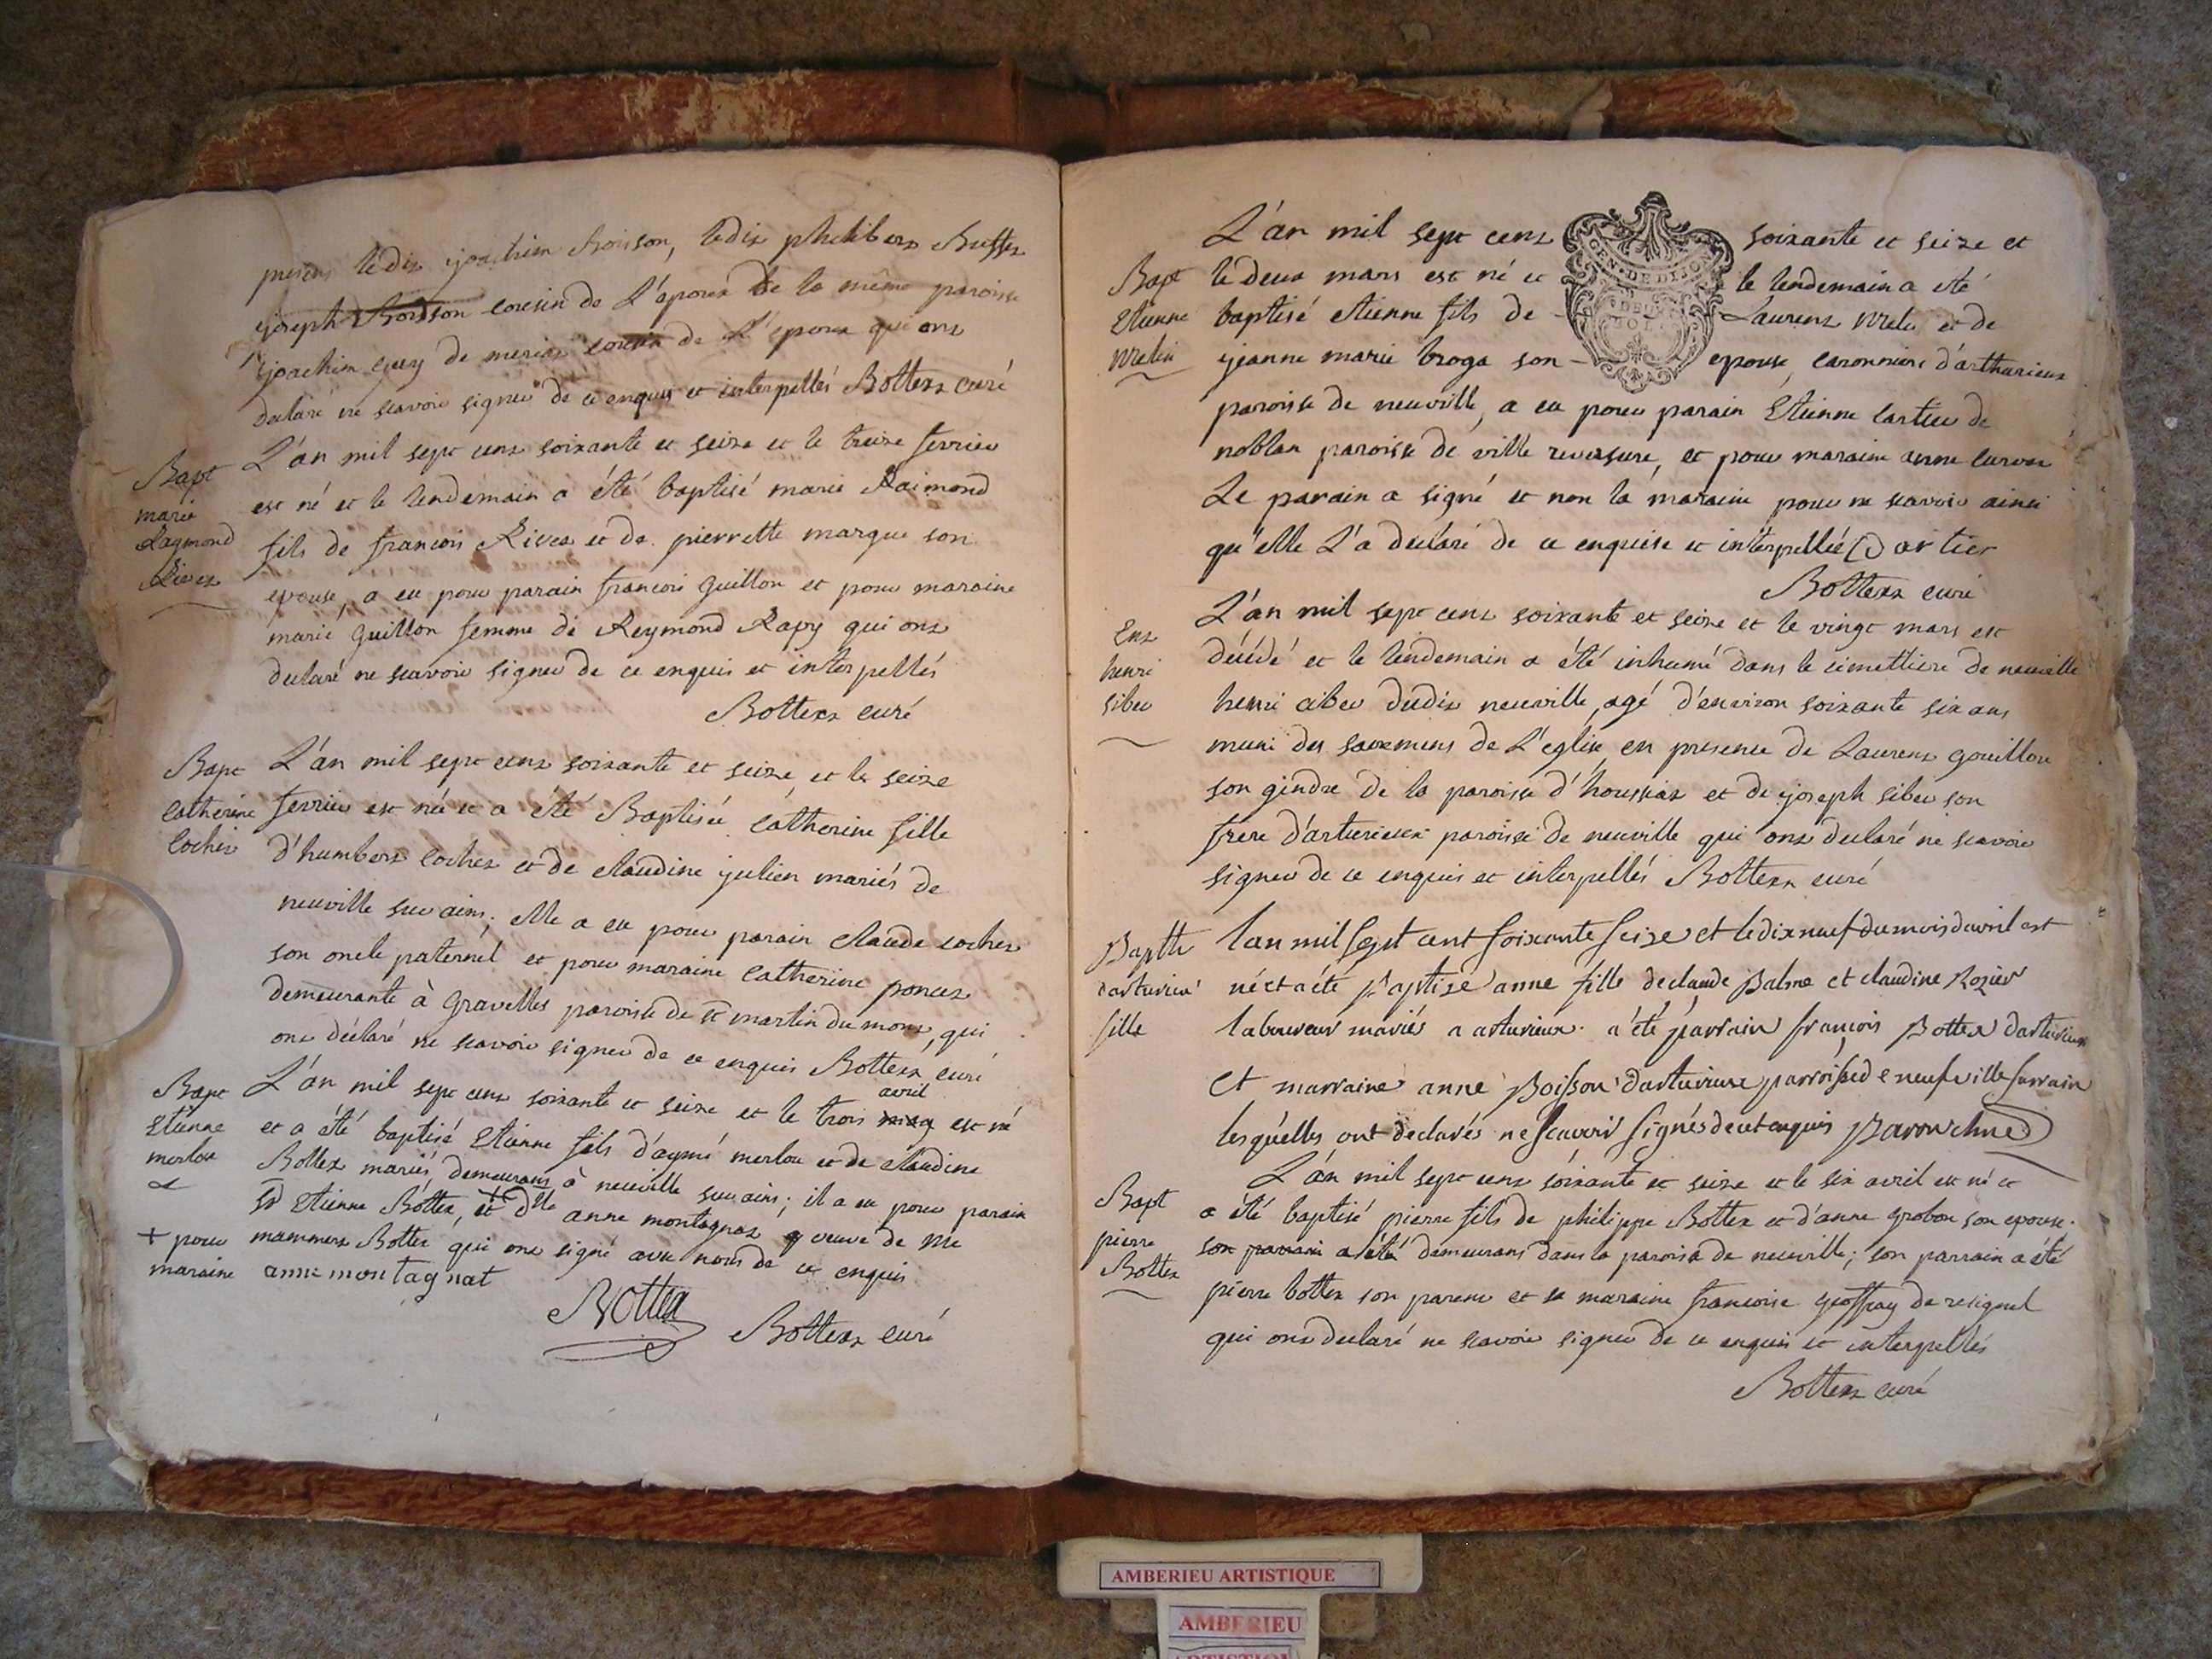 presens ledit joachim Boisson, ledit philibert Buffet
joseph Boisson cousin de L'epoux de la même paroisse
joachim guy de meriat cousin de L'epoux qui ont
declaré ne scavoir signer de ce enquis et interpellés Bottex curé
Bapt
marie
Raymond
Rivet
L'an mil sept cent soixante et seize et le treize fevrier
est né et le lendemain a été baptisé marie Raimond
fils de francois Rivet et de pierrette marque son
epouse, a eu pour parain francois Guillon et pour maraine
marie Guillon femme de Reymond Rapy qui ont
declaré ne scavoir signer de ce enquis et interpellés
Bottex curé
Bapt
Catherine
Cochet
L'an mil sept cent soixante et seize et le seize
fevrier est née et a été Baptisée Catherine fille
d'humbert Cochet et de claudine julien mariés de
neuville sur ains; elle a eu pour parain claude cochet
son oncle paternel et pour maraine Catherine poncet
demeurante à Gravelles paroisse de st martin du mont, qui
ont déclaré ne scavoir signer de ce enquis Bottex curé
Bapt
Etienne
merlou
L'an mil sept cent soixante et seize et le trois may avril est né
et a été baptisé Etienne fils d'aymé merlou et de claudine
Bottex mariés demeurans à neuville sur ains; il a eu pour parain
Sr Etienne Bottex, et + dlle anne montagnat veuve de Me
mammert Bottex qui ont signé avec nous de ce enquis
+ pour
maraine
anne montagnat
Bottex
Bottex curé
GEN. DE DIJON
L'an mil sept cent soixante et seize et
Bapt
Etienne
Vrelin
le deux mars est né et le lendemain a eté
baptisé etienne fils de Laurent Vrelin et de
jeanne marie broga son epouse, d'artharieux
paroisse de neuville, a eu pour parain Etienne Cartier de
noblan paroisse de ville reversure, et pour maraine anne
Le parain a signé et non la maraine pour ne scavoir ainsi
qu'elle L'a declaré de ce enquise et interpellée Cartier
Bottex curé
Ent
henri
Siber
L'an mil sept cent soixante et seize et le vingt mars est
décédé et le lendemain a été inhumé dans le cimettiere de neuville
henri ciber dudit neuville, agé d'environ soixante six ans
muni des sacremens de L'eglise en presence de Laurent Gouillon
son gendre de la paroisse d'houssiat et de joseph siber son
frere d'arturieux paroisse de neuville qui ont declaré ne scavoir
signer de ce enquis et interpellés Bottex curé
Baptte
darturieu
fille
lan mil sept cent soixante seize et le dix neuf du mois davril est
né et a été Baptize anne fille de claude Balme et claudine Rozier
laboureur mariés a arturieux a été parrain françois Bottex darturieux
Et marraine anne Boisson darturieux parroisse de neufville surrain
lesquelles ont declarés ne scavoir signés de cet enquis
Bapt
pierre
Bottex
L'an mil sept cent soixante et seize et le six avril est né et
a été baptisé pierre fils de philippe Bottex et d'anne grobon son epouse
son parrain a été demeurans dans la paroisse de neuville; son parrain a été
pierre bottex son parent et sa maraine francoise Geoffray de resignel
qui ont declaré ne scavoir signer de ce enquis et interpellés
Bottex curé
AMBERIEU ARTISTIQUE
AMBERIEU
ARTISTIQUE